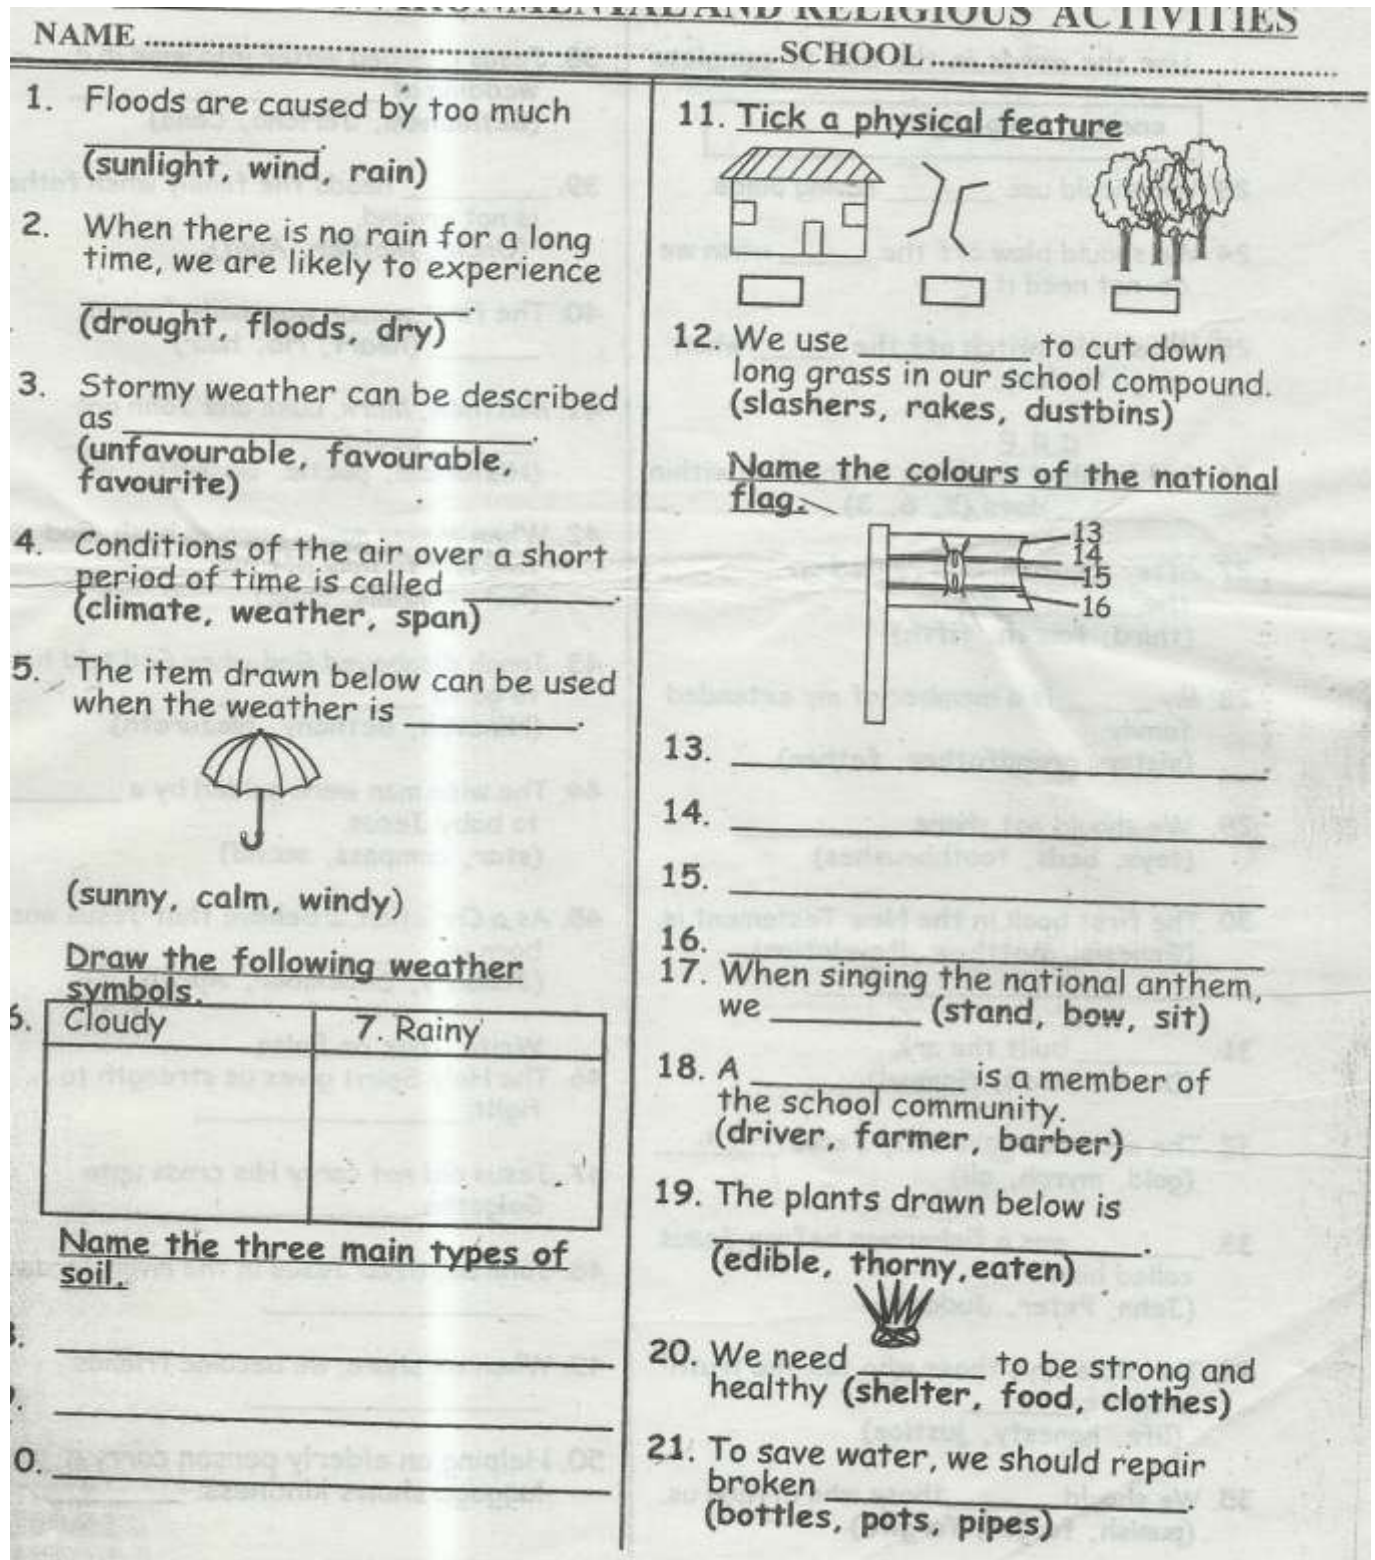 AND RELIGIOUS ACTIVITIES
NAME ............ SCHOOL ............
1. Floods are caused by too much
____________.
(sunlight, wind, rain)
2. When there is no rain for a long
time, we are likely to experience
____________.
(drought, floods, dry)
3. Stormy weather can be described
as ____________.
(unfavourable, favourable,
favourite)
4. Conditions of the air over a short
period of time is called ________.
(climate, weather, span)
5. The item drawn below can be used
when the weather is ________.
(sunny, calm, windy)
Draw the following weather
symbols.
Cloudy 7. Rainy
Name the three main types of
soil.
____________
____________
0. ____________
11. Tick a physical feature
12. We use ________ to cut down
long grass in our school compound.
(slashers, rakes, dustbins)
Name the colours of the national
flag.
13
14
15
16
13. ____________
14. ____________
15. ____________
16. ____________
17. When singing the national anthem,
we ________ (stand, bow, sit)
18. A ________ is a member of
the school community.
(driver, farmer, barber)
19. The plants drawn below is
____________.
(edible, thorny, eaten)
20. We need ________ to be strong and
healthy (shelter, food, clothes)
21. To save water, we should repair
broken ____________.
(bottles, pots, pipes)